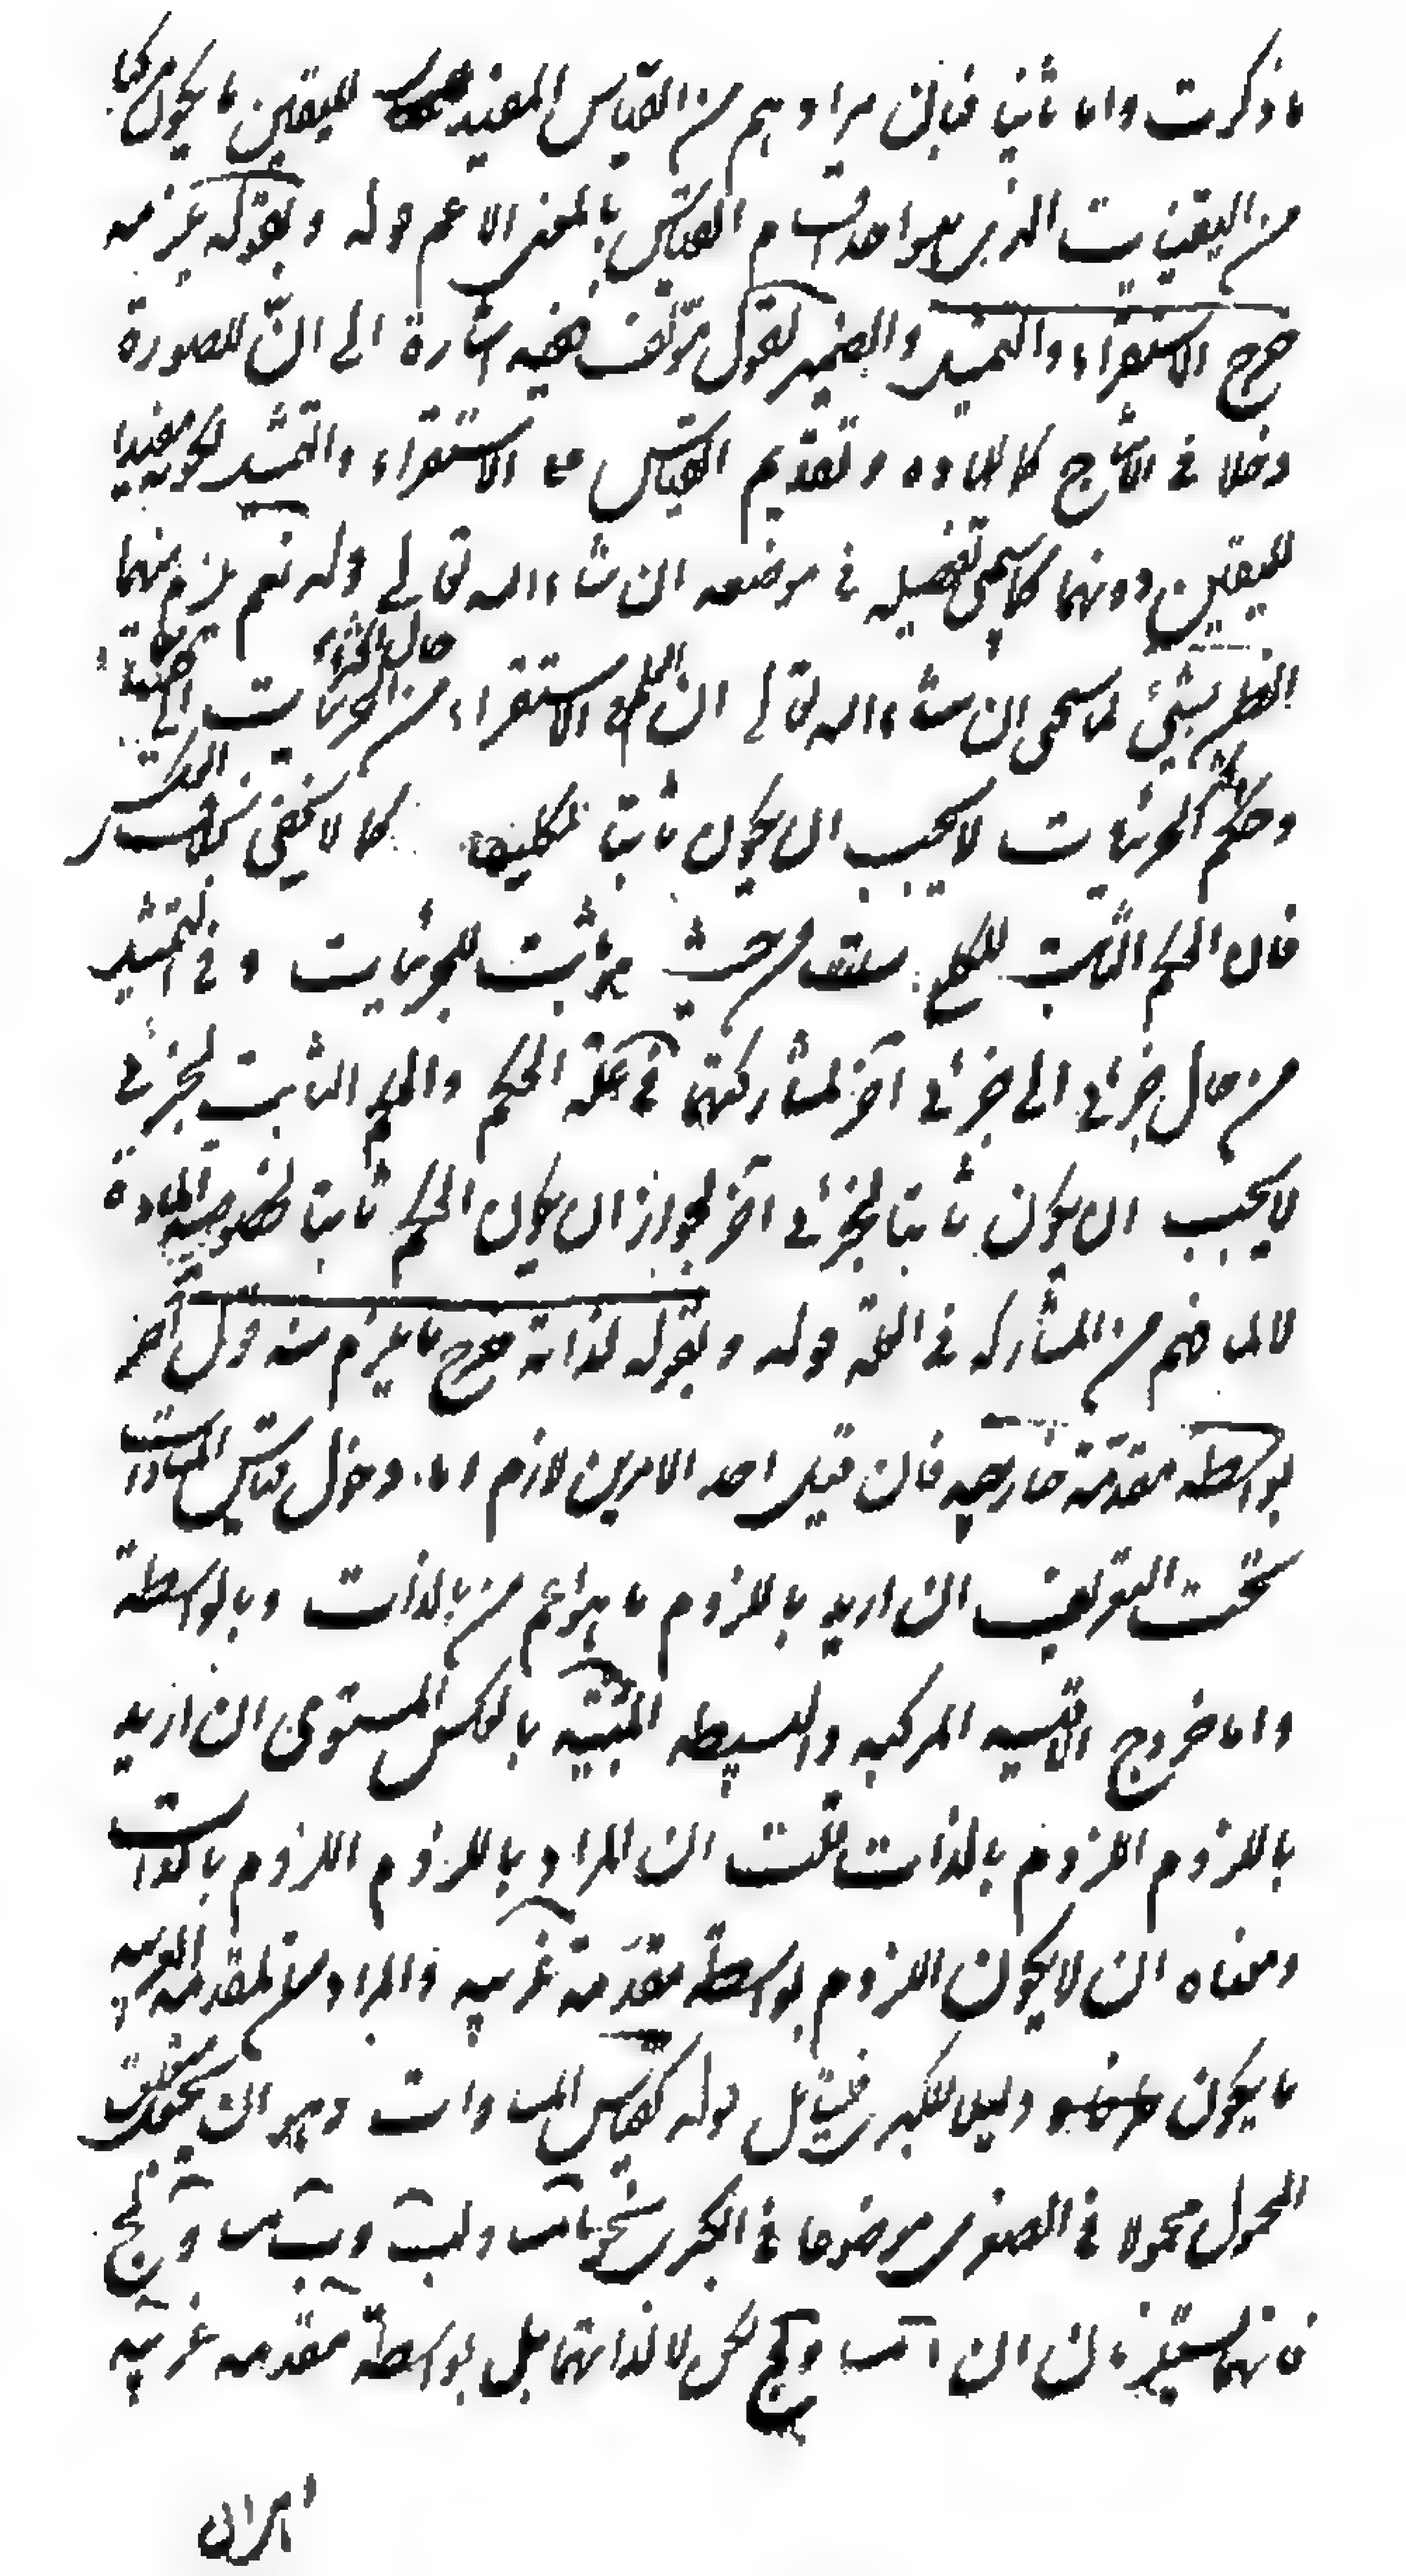 ما ذكرت واما ثانيا فبان مرادهم من القياس المفيد لليقين ما يكون مركبا
من اليقينيات الذي هو احد اقسام القياس بالمعنى الاعم قوله وبقوله يلزم منه
خرج الاستقراء والتمثيل والضمير لقول مؤلف ففيه اشارة الى ان للصورة
دخلا في الانتاج كالمادة وتقديم القياس على الاستقراء والتمثيل لكونه مفيدا
لليقين دونهما كما سيجئ تفصيله في موضعه ان شاء الله تعالى قوله نعم يلزم منهما
الظن بشئ لما سيجئ ان شاء الله تعالى ان الحكم في الاستقراء من حال اكثر الجزئيات الى
وحكم اكثر الجزئيات لا يجب ان يكون ثابتا لكليها كما لا يخفى بخلاف
فان الحكم الثابت للكلي من حيث هو ثابت للجزئيات وفي التمثيل
من حال جزئي الى جزئي آخر لمشاركتهما في علة الحكم والحكم الثابت لجزئي
لا يجب ان يكون ثابتا لجزئي آخر لجواز ان يكون الحكم ثابتا لخصوصية المادة
لا لما فهم من المشاركة في العلة قوله وبقوله لذاته خرج ما يلزم منه قول آخر
بواسطة مقدمة خارجية فان قيل احد الامرين لازم اما دخول قياس المساوات
تحت التعريف ان اريد باللزوم ما هو اعم من بالذات وبالواسطة
واما خروج الاقيسة المركبة والبسيطة المبينة بالعكس المستوي ان اريد
باللزوم اللزوم بالذات قلت ان المراد باللزوم اللزوم بالذات
ومعناه ان لا يكون اللزوم بواسطة مقدمة غريبة والمراد من المقدمة الغريبة
ما يكون قوله كقياس المساوات وهو ان يكون متعلق
المحمول محمولا في الصغرى موضوعا في الكبرى نحو
فانهما يستلزمان ان لكن لا لذاتهما بل بواسطة مقدمة غريبة